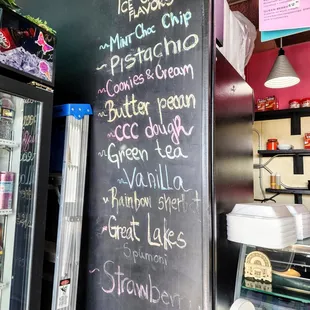 ICE CREAM
FLAVORS
~Mint Choc Chip
~Pistachio
~Cookies & Cream
~Butter pecan
~CCC dough
~Green tea
~Vanilla
~Rainbow sherbet
~Great Lakes
Spumoni
~Strawberry